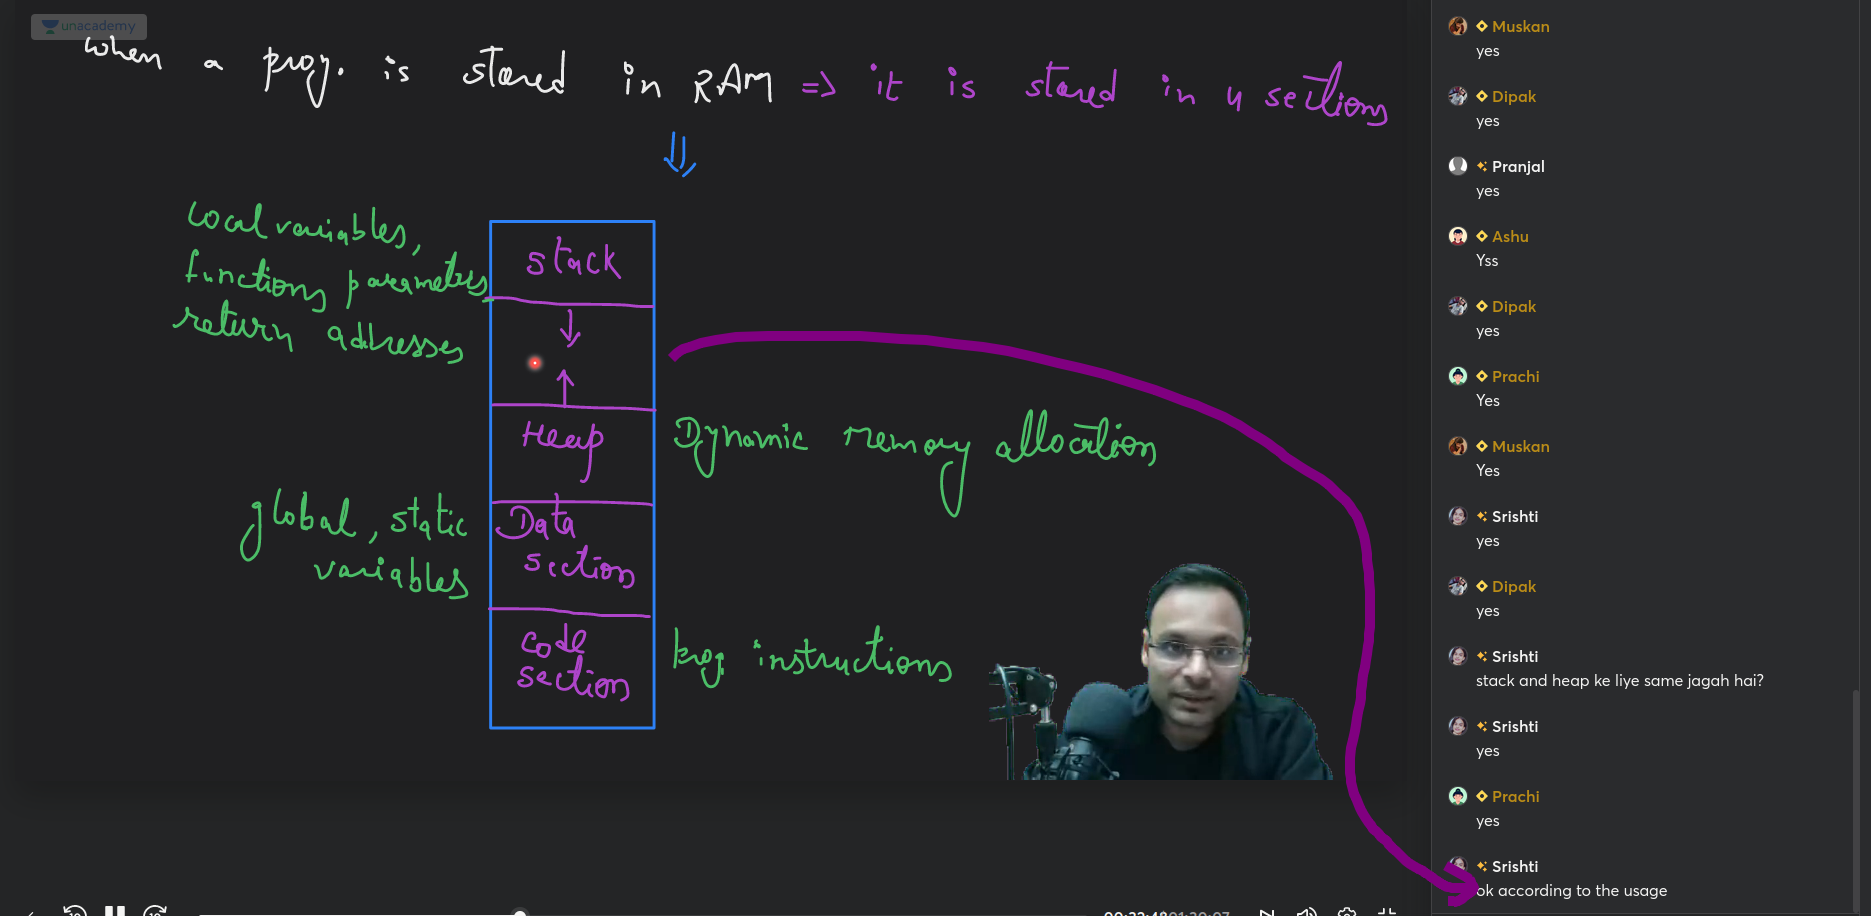 unacademy
when a prog. is stored in RAM => it is stored in 4 sections
local variables,
functions parameters
return addresses
stack
Heap
Dynamic memory allocation
global, static
variables
Data
section
code
section
prog instructions
Muskan
yes
Dipak
yes
Pranjal
yes
Ashu
Yss
Dipak
yes
Prachi
Yes
Muskan
Yes
Srishti
yes
Dipak
yes
Srishti
stack and heap ke liye same jagah hai?
Srishti
yes
Prachi
yes
Srishti
ok according to the usage